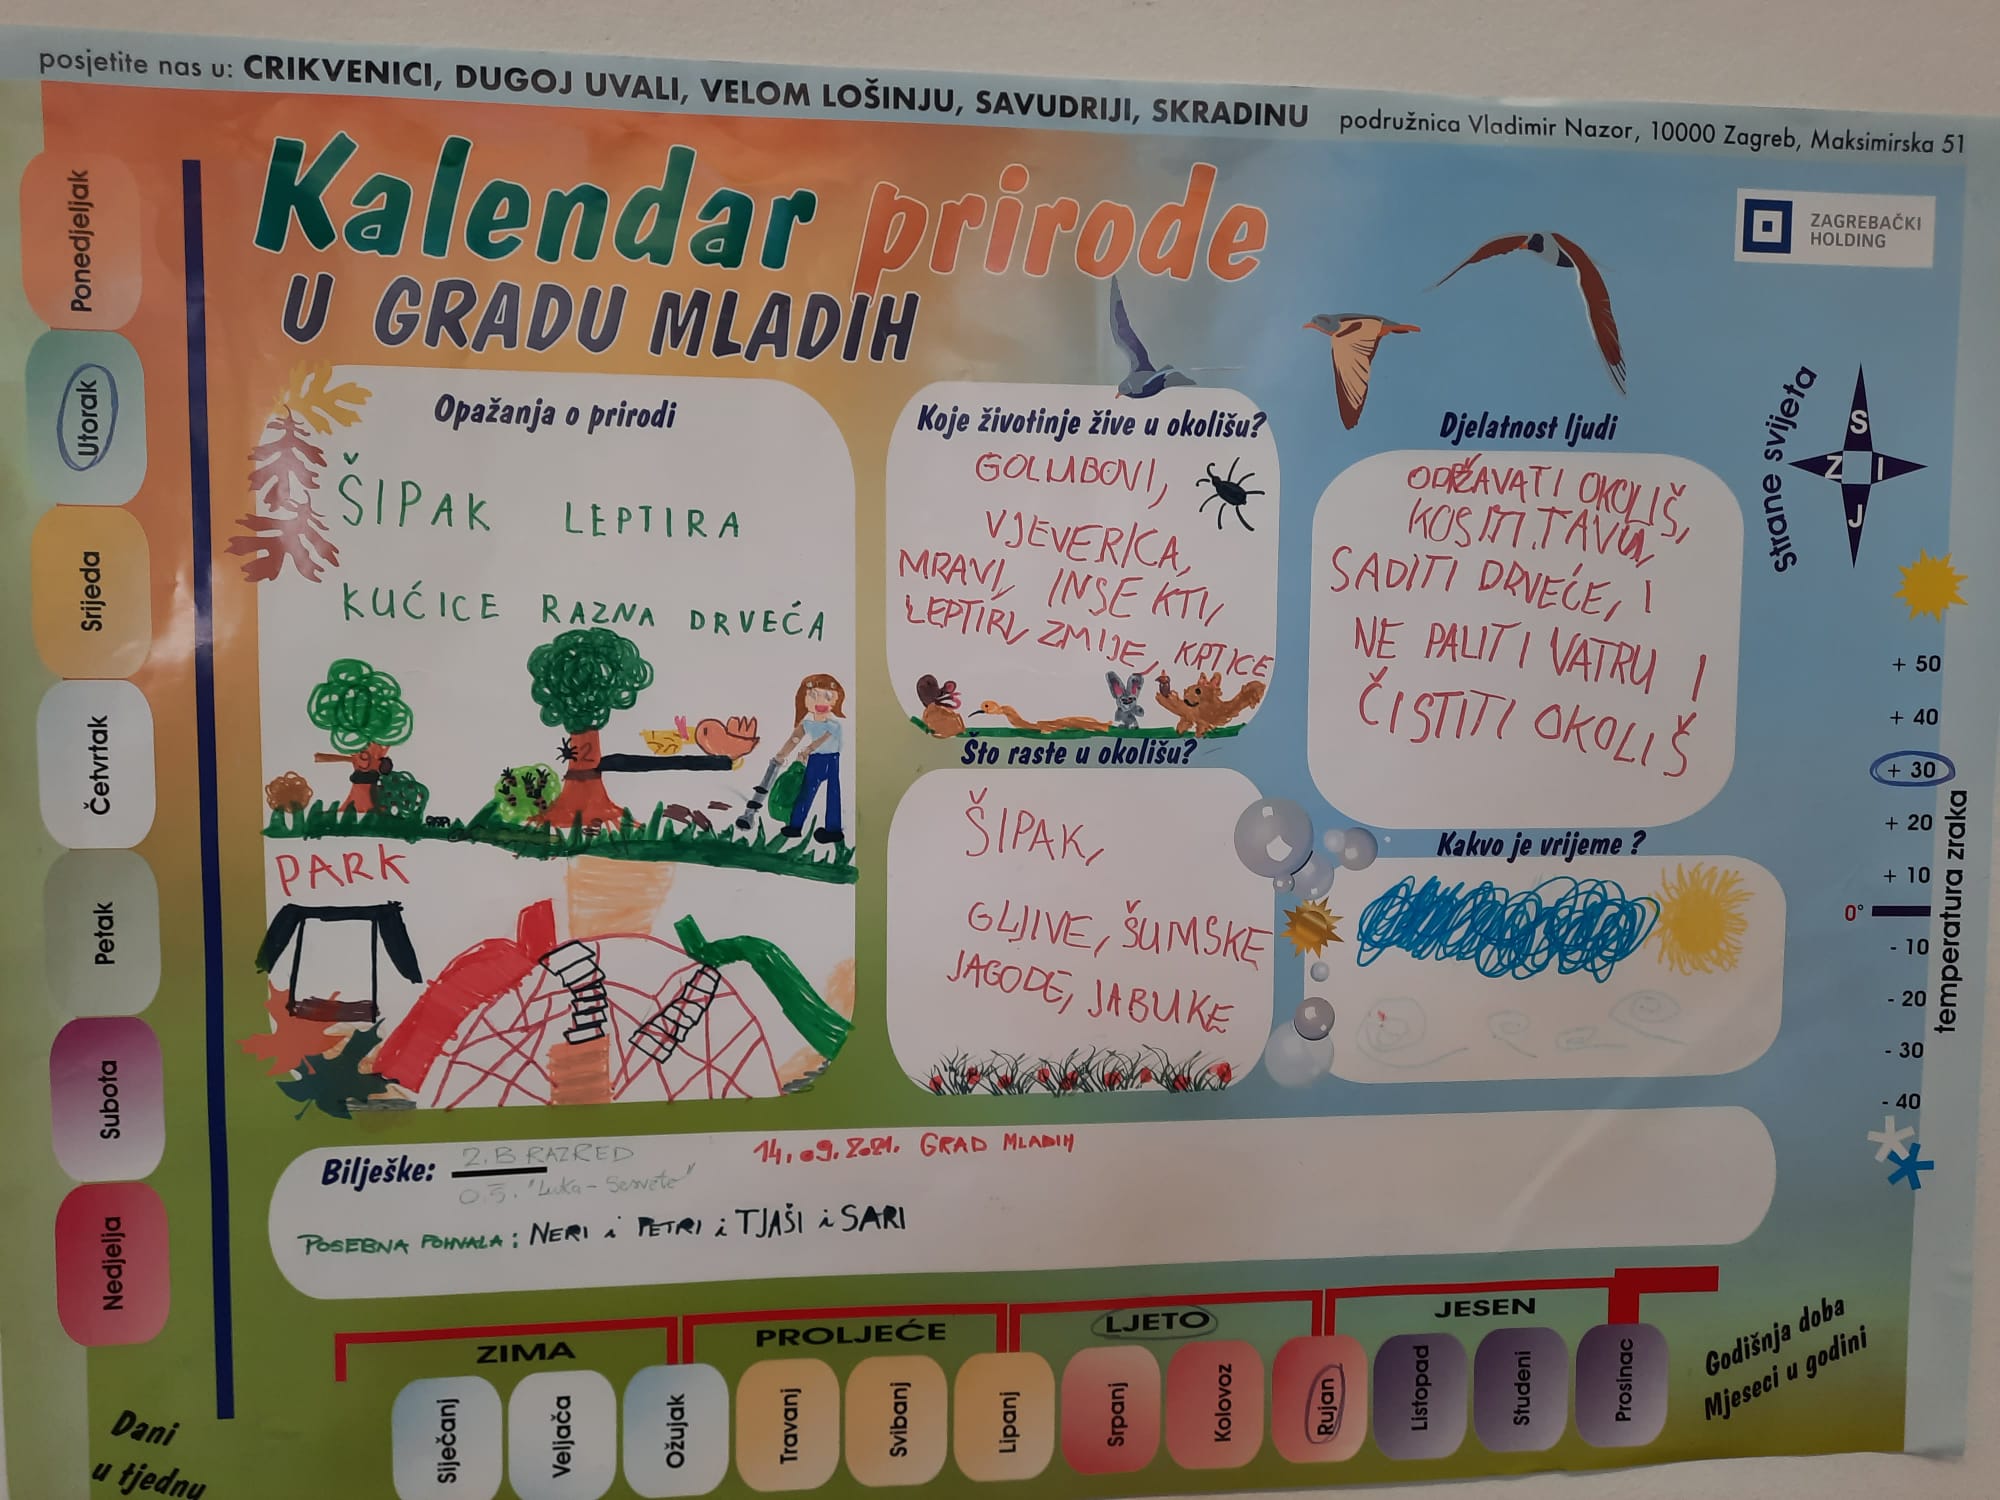 posjetite nas u: CRIKVENICI, DUGOJ UVALI, VELOM LOŠINJU, SAVUDRIJI, SKRADINU podružnica Vladimir Nazor, 10000 Zagreb, Maksimirska 51
Kalendar prirode
U GRADU MLADIH
ZAGREBAČKI
HOLDING
Ponedjeljak
Utorak
Srijeda
Četvrtak
Petak
Subota
Nedjelja
Dani
u tjednu
Opažanja o prirodi
ŠIPAK LEPTIRA
KUĆICE RAZNA DRVEĆA
PARK
Koje životinje žive u okolišu?
GOLUBOVI,
VJEVERICA,
MRAVI, INSEKTI,
LEPTIRI, ZMIJE, KRTICE
Što raste u okolišu?
ŠIPAK,
GLJIVE, ŠUMSKE
JAGODE, JABUKE
Djelatnost ljudi
ODRŽAVATI OKOLIŠ,
KOSITI TAVU,
SADITI DRVEĆE, I
NE PALITI VATRU I
ČISTITI OKOLIŠ
Kakvo je vrijeme ?
Strane svijeta
S
Z I
J
+ 50
+ 40
+ 30
+ 20
+ 10
0°
- 10
- 20
- 30
- 40
temperatura zraka
Bilješke: 2. B RAZRED 14. 09. 2021. GRAD MLADIH
O.Š. "Luka - Sesvete"
POSEBNA POHVALA: NERI i PETRI i TJAŠI i SARI
ZIMA PROLJEĆE LJETO JESEN
Siječanj
Veljača
Ožujak
Travanj
Svibanj
Lipanj
Srpanj
Kolovoz
Rujan
Listopad
Studeni
Prosinac
Godišnja doba
Mjeseci u godini